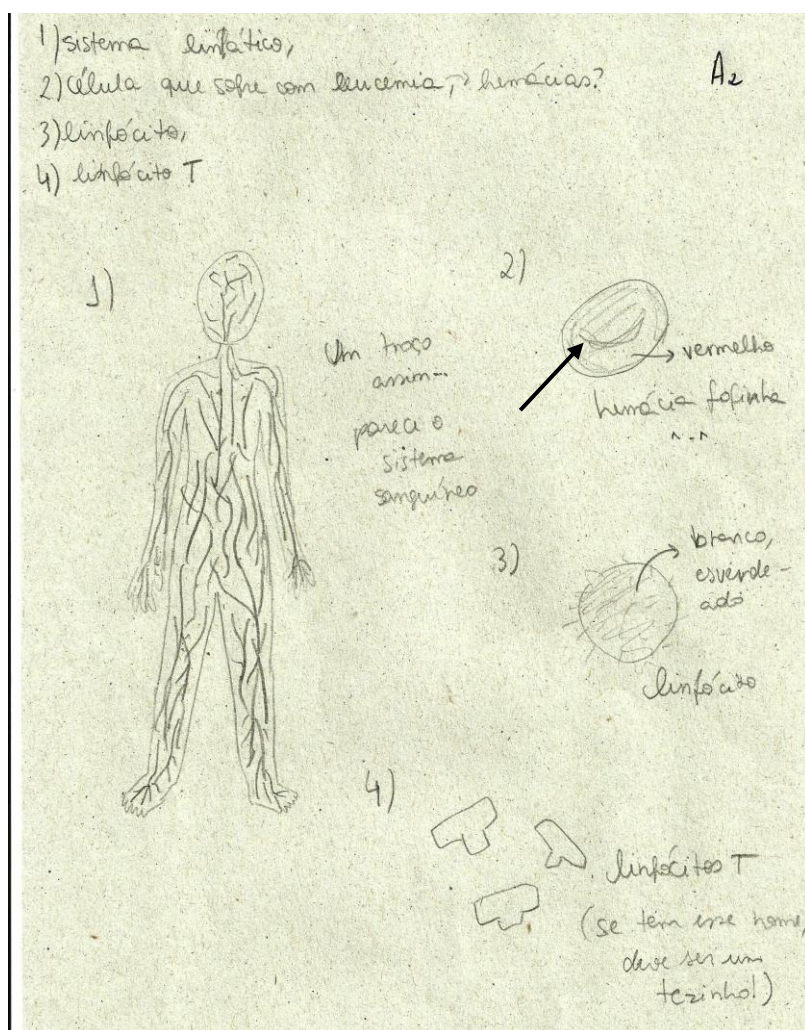 1) sistema linfático,
2) célula que sofre com leucemia, → hemácias?
A2
3) linfócito,
4) linfócito T
1)
Um troço
assim...
parece o
sistema
sanguíneo
2)
vermelho
hemácia fofinha
^.^
3)
branco,
esverde-
ado
linfócito
4)
linfócitos T
(se tem esse nome,
deve ser um
tezinho!)